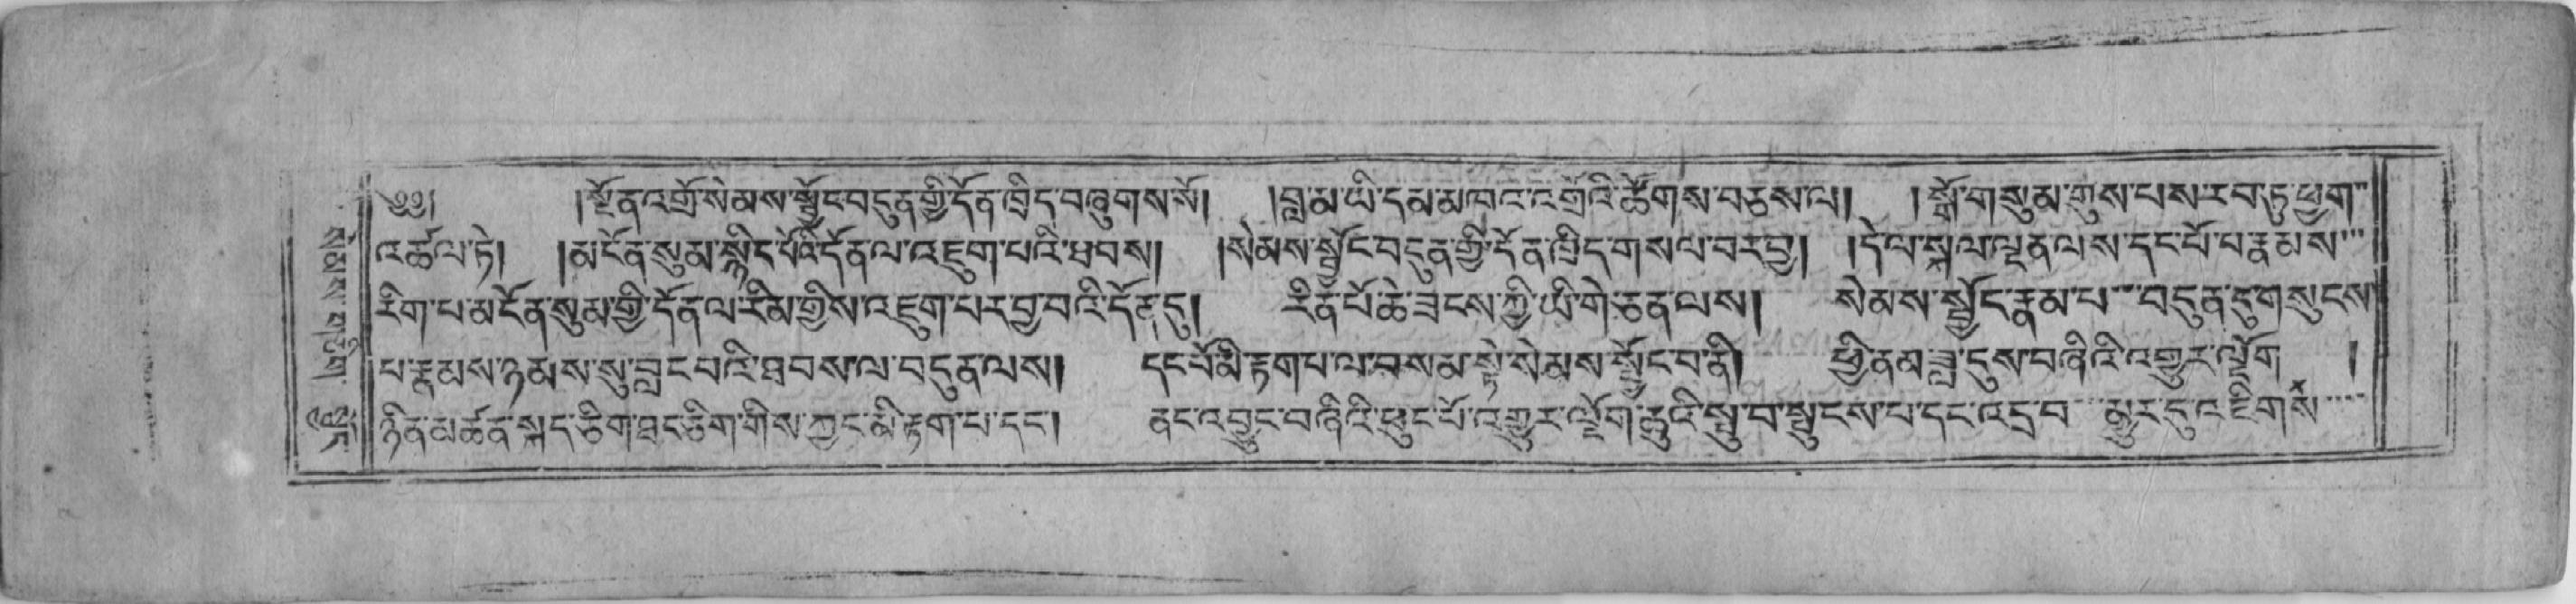 ༄༅། །སྔོན་འགྲོ་སེམས་སྦྱོང་བདུན་གྱི་དོན་ཁྲིད་བཞུགས་སོ། །བླ་མ་ཡི་དམ་མཁའ་འགྲོའི་ཚོགས་བཅས་ལ། །སྒོ་གསུམ་གུས་པས་རབ་ཏུ་ཕྱག་
འཚལ་ཏེ། །མངོན་སུམ་སྙིང་པོའི་དོན་ལ་འཇུག་པའི་ཐབས། །སེམས་སྦྱོང་བདུན་གྱི་དོན་ཁྲིད་གསལ་བར་བྱ། །དེ་ལ་སྐལ་ལྡན་ལས་དང་པོ་པ་རྣམས་
རིག་པ་མངོན་སུམ་གྱི་དོན་ལ་རིམ་གྱིས་འཇུག་པར་བྱ་བའི་དོན་དུ། རིན་པོ་ཆེ་ཟངས་ཀྱི་ཡི་གེ་ཅན་ལས། སེམས་སྦྱོང་རྣམ་པ་བདུན་དུ་གསུངས་
པ་རྣམས་ཉམས་སུ་བླང་བའི་ཐབས་ལ་བདུན་ལས། དང་པོ་མི་རྟག་པ་ལ་བསམ་སྟེ་སེམས་སྦྱོང་བ་ནི། ཕྱི་ནམ་ཟླ་དུས་བཞིའི་འགྱུར་ལྡོག །
ཉིན་མཚན་སྐད་ཅིག་ཐང་ཅིག་གིས་ཀྱང་མི་རྟག་པ་དང་། ནང་འབྱུང་བཞིའི་ཕུང་པོ་འགྱུར་ལྡོག་རྡུའི་སྤུ་བ་སྤུངས་པ་དང་འདྲ་བ་མྱུར་དུ་འཇིགས་